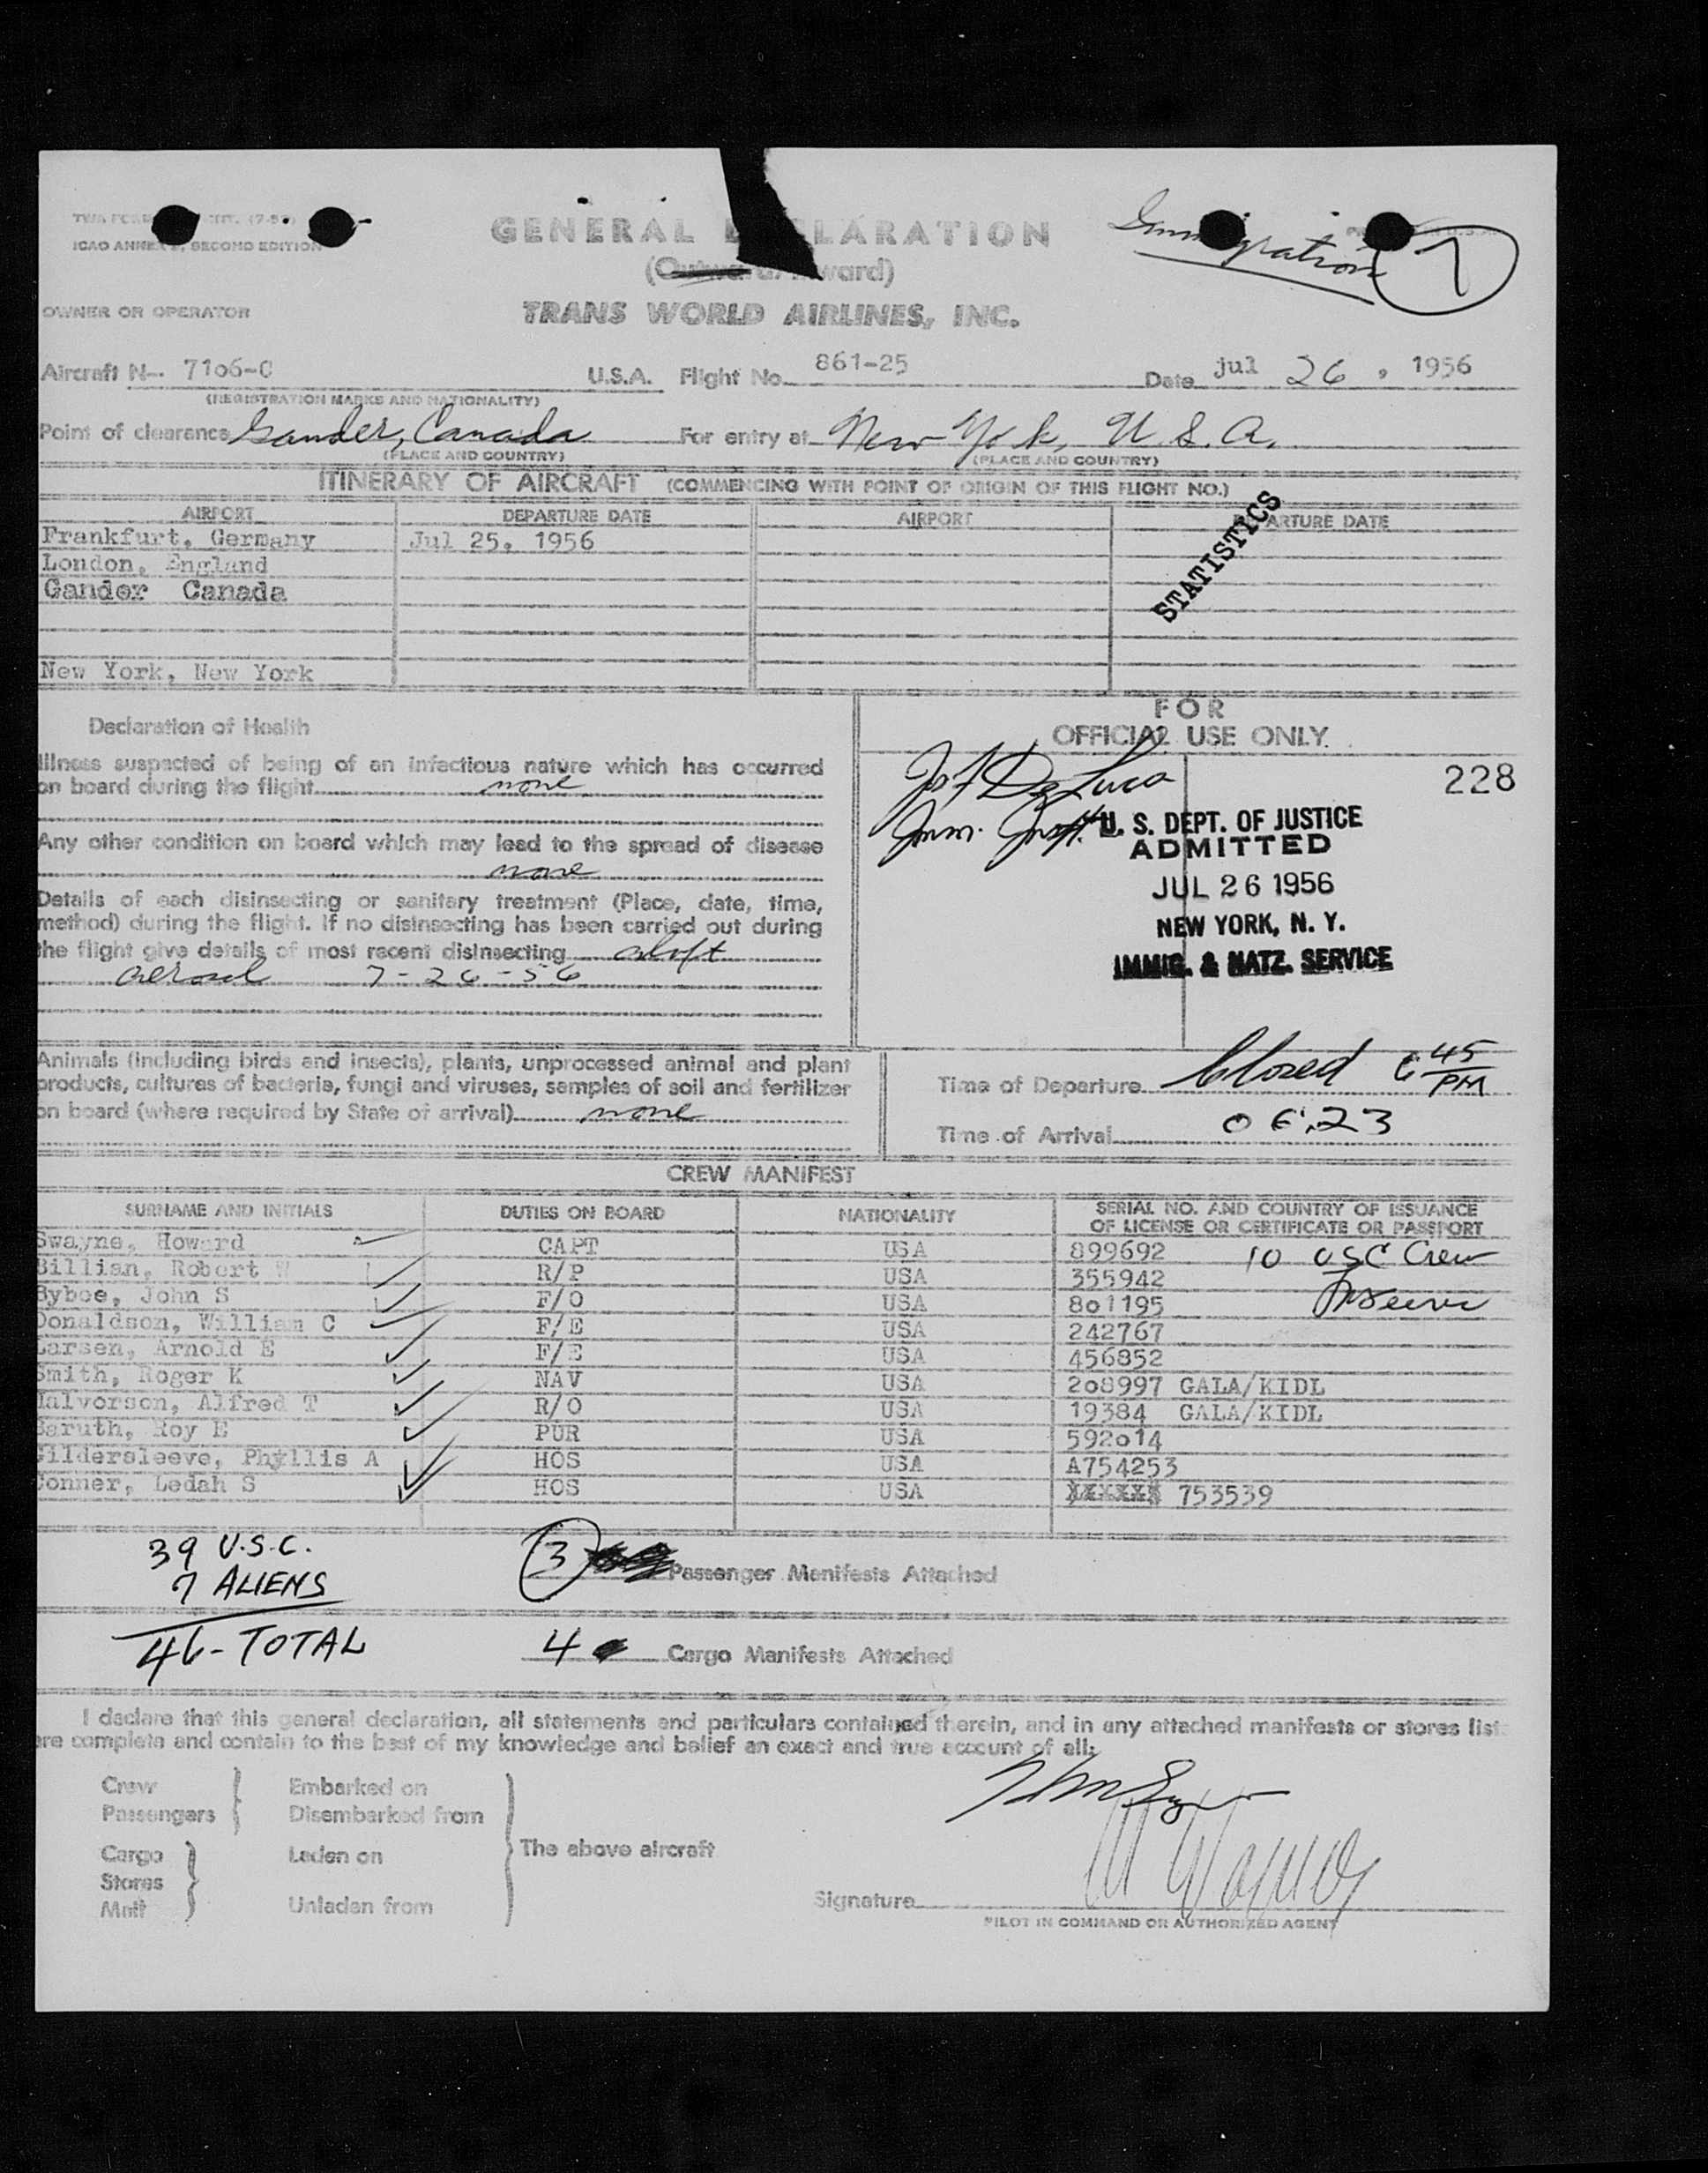 ICAO ANNEX SECOND EDITION
GENERAL DECLARATION
Immigration 7
OWNER OR OPERATOR
TRANS WORLD AIRLINES, INC.
Aircraft N-. 7106-C U.S.A. Flight No. 861-25 Date Jul 26, 1956
(REGISTRATION MARKS AND NATIONALITY)
Point of clearance Gander, Canada For entry at New York, U.S.A.
(PLACE AND COUNTRY) (PLACE AND COUNTRY)
ITINERARY OF AIRCRAFT (COMMENCING WITH POINT OF ORIGIN OF THIS FLIGHT NO.)
AIRPORT DEPARTURE DATE AIRPORT ARTURE DATE
STATISTICS
Frankfurt, Germany Jul 25, 1956
London, England
Gander Canada
New York, New York
FOR
OFFICIAL USE ONLY
Declaration of Health
Illness suspected of being of an infectious nature which has occurred
on board during the flight none
Any other condition on board which may lead to the spread of disease
none
Details of each disinsecting or sanitary treatment (Place, date, time,
method) during the flight. If no disinsecting has been carried out during
the flight give details of most recent disinsecting aloft
aerosol 7-26-56
Jos F DeLuca
Imm. Insp.
228
U. S. DEPT. OF JUSTICE
ADMITTED
JUL 26 1956
NEW YORK, N. Y.
IMMIG. & NATZ. SERVICE
Animals (including birds and insects), plants, unprocessed animal and plant
products, cultures of bacteria, fungi and viruses, samples of soil and fertilizer
on board (where required by State of arrival) none
Time of Departure Closed 6 45 PM
Time of Arrival 06:23
CREW MANIFEST
SURNAME AND INITIALS DUTIES ON BOARD NATIONALITY SERIAL NO. AND COUNTRY OF ISSUANCE
OF LICENSE OR CERTIFICATE OR PASSPORT
Swayne, Howard CAPT USA 899692 10 USC Crew
Billian, Robert W R/P USA 355942
Byboe, John S F/O USA 801195
Donaldson, William C F/E USA 242767
Larsen, Arnold E F/E USA 456852
Smith, Roger K NAV USA 208997 GALA/KIDL
Halvorson, Alfred T R/O USA 19384 GALA/KIDL
Baruth, Roy E PUR USA 592014
Gildersleeve, Phyllis A HOS USA A754253
Conner, Ledah S HOS USA XXXXXX 753539
39 U.S.C.
7 ALIENS
46 - TOTAL
3 Passenger Manifests Attached
4 Cargo Manifests Attached
I declare that this general declaration, all statements and particulars contained therein, and in any attached manifests or stores list
are complete and contain to the best of my knowledge and belief an exact and true account of all:
Crew Embarked on
Passengers Disembarked from
The above aircraft
Cargo Laden on
Stores
Mail Unladen from
Signature
PILOT IN COMMAND OR AUTHORIZED AGENT